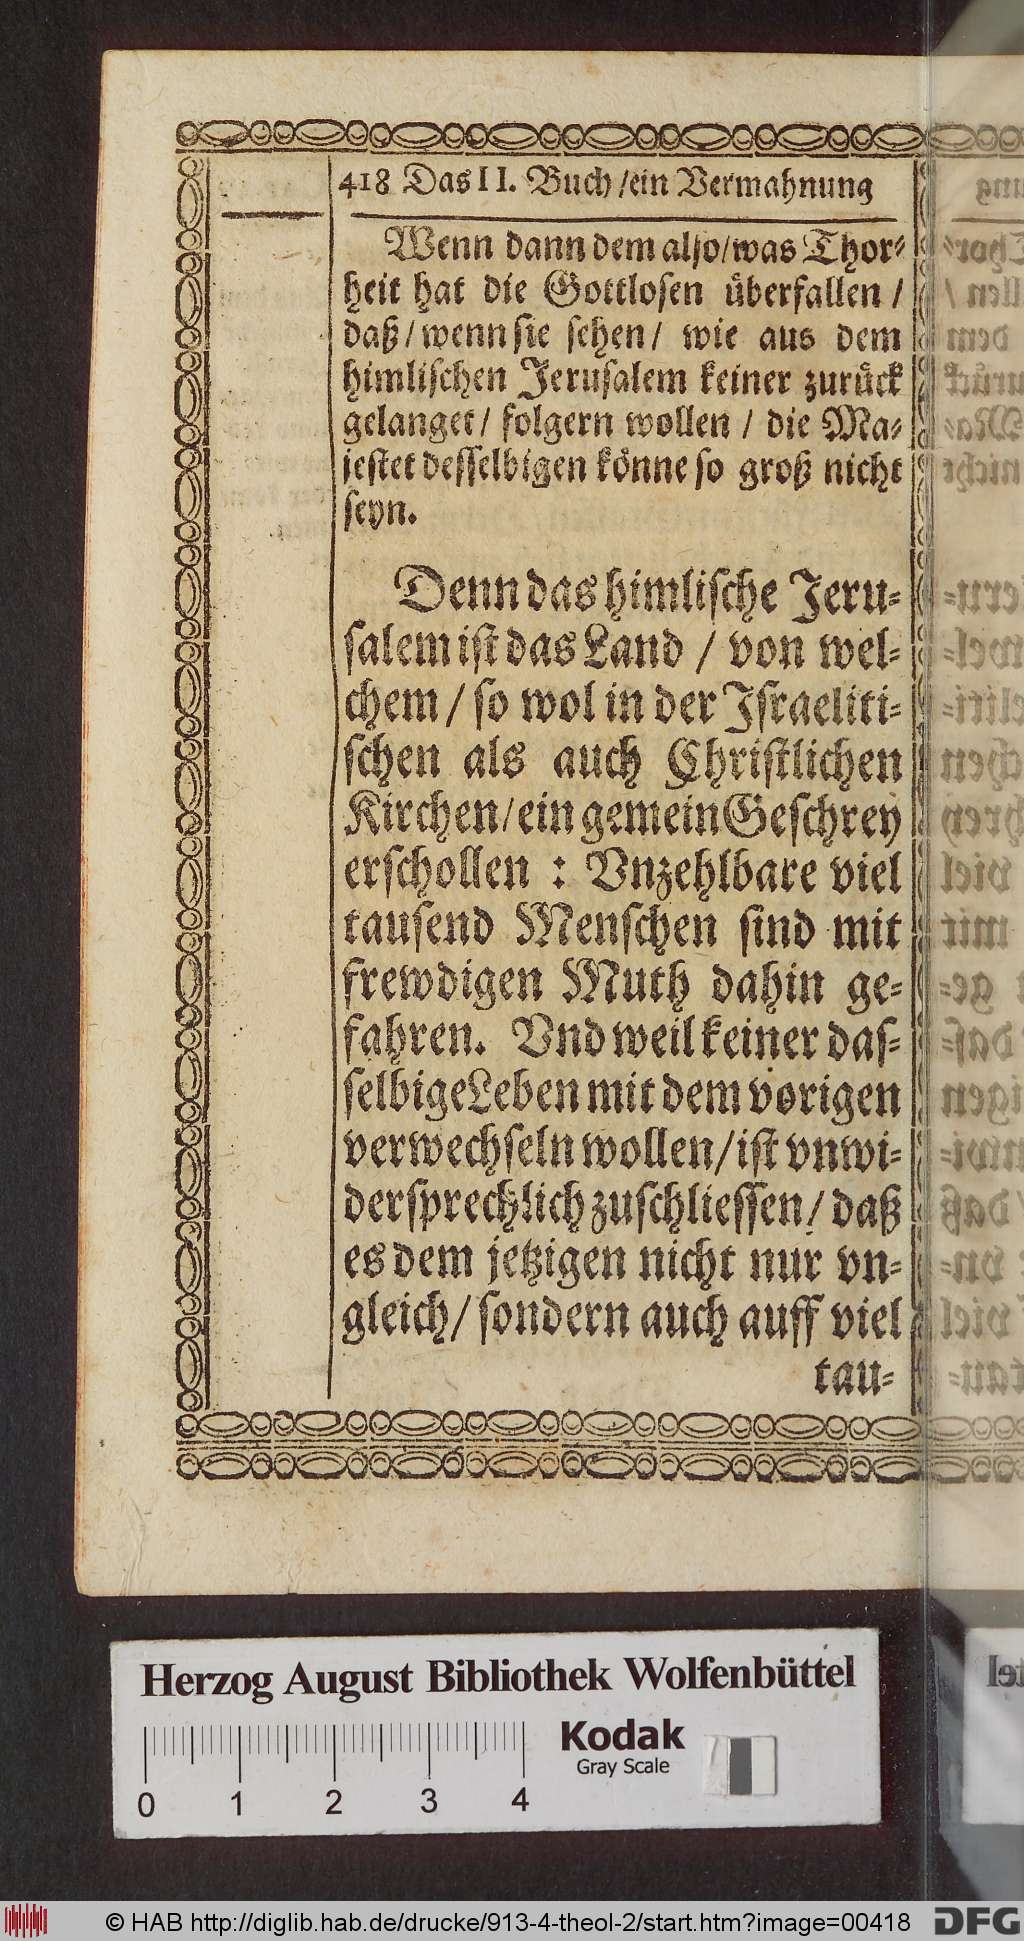 418 Das II. Buch / ein Vermahnung
Wenn dann dem also / was Thor-
heit hat die Gottlosen überfallen /
daß / wenn sie sehen / wie aus dem
himlischen Jerusalem keiner zurück
gelanget / folgern wollen / die Ma-
jestet desselbigen könne so groß nicht
seyn.
Denn das himlische Jeru-
salem ist das Land / von wel-
chem / so wol in der Israeliti-
schen als auch Christlichen
Kirchen / ein gemein Geschrey
erschollen : Vnzehlbare viel
tausend Menschen sind mit
frewdigen Muth dahin ge-
fahren. Vnd weil keiner das-
selbige Leben mit dem vorigen
verwechseln wollen / ist vnwi-
dersprechlich zuschliessen / daß
es dem jetzigen nicht nur vn-
gleich / sondern auch auff viel
tau-
Herzog August Bibliothek Wolfenbüttel
Kodak
Gray Scale
0 1 2 3 4
© HAB http://diglib.hab.de/drucke/913-4-theol-2/start.htm?image=00418
DFG